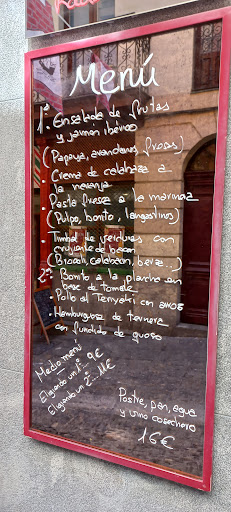 Menú
1º. Ensalada de frutas
y jamon ibérico
(Papaya, arandanos, fresas)
Crema de calabaza a
la naranja
Pasta fresca a la marinera
(Pulpo, bonito, langostinos)
Timbal de verduras con
crujiente de bacon
(Brocoli, calabacin, berza..)
2º. Bonito a la plancha en
base de tomate
Pollo al Teriyaki con arroz
Hamburguesa de ternera
con fundido de queso
Medio menú
Eligiendo un 1º: 9€
Eligiendo un 2º: 11€
Postre, pan, agua
y vino cosechero
16€